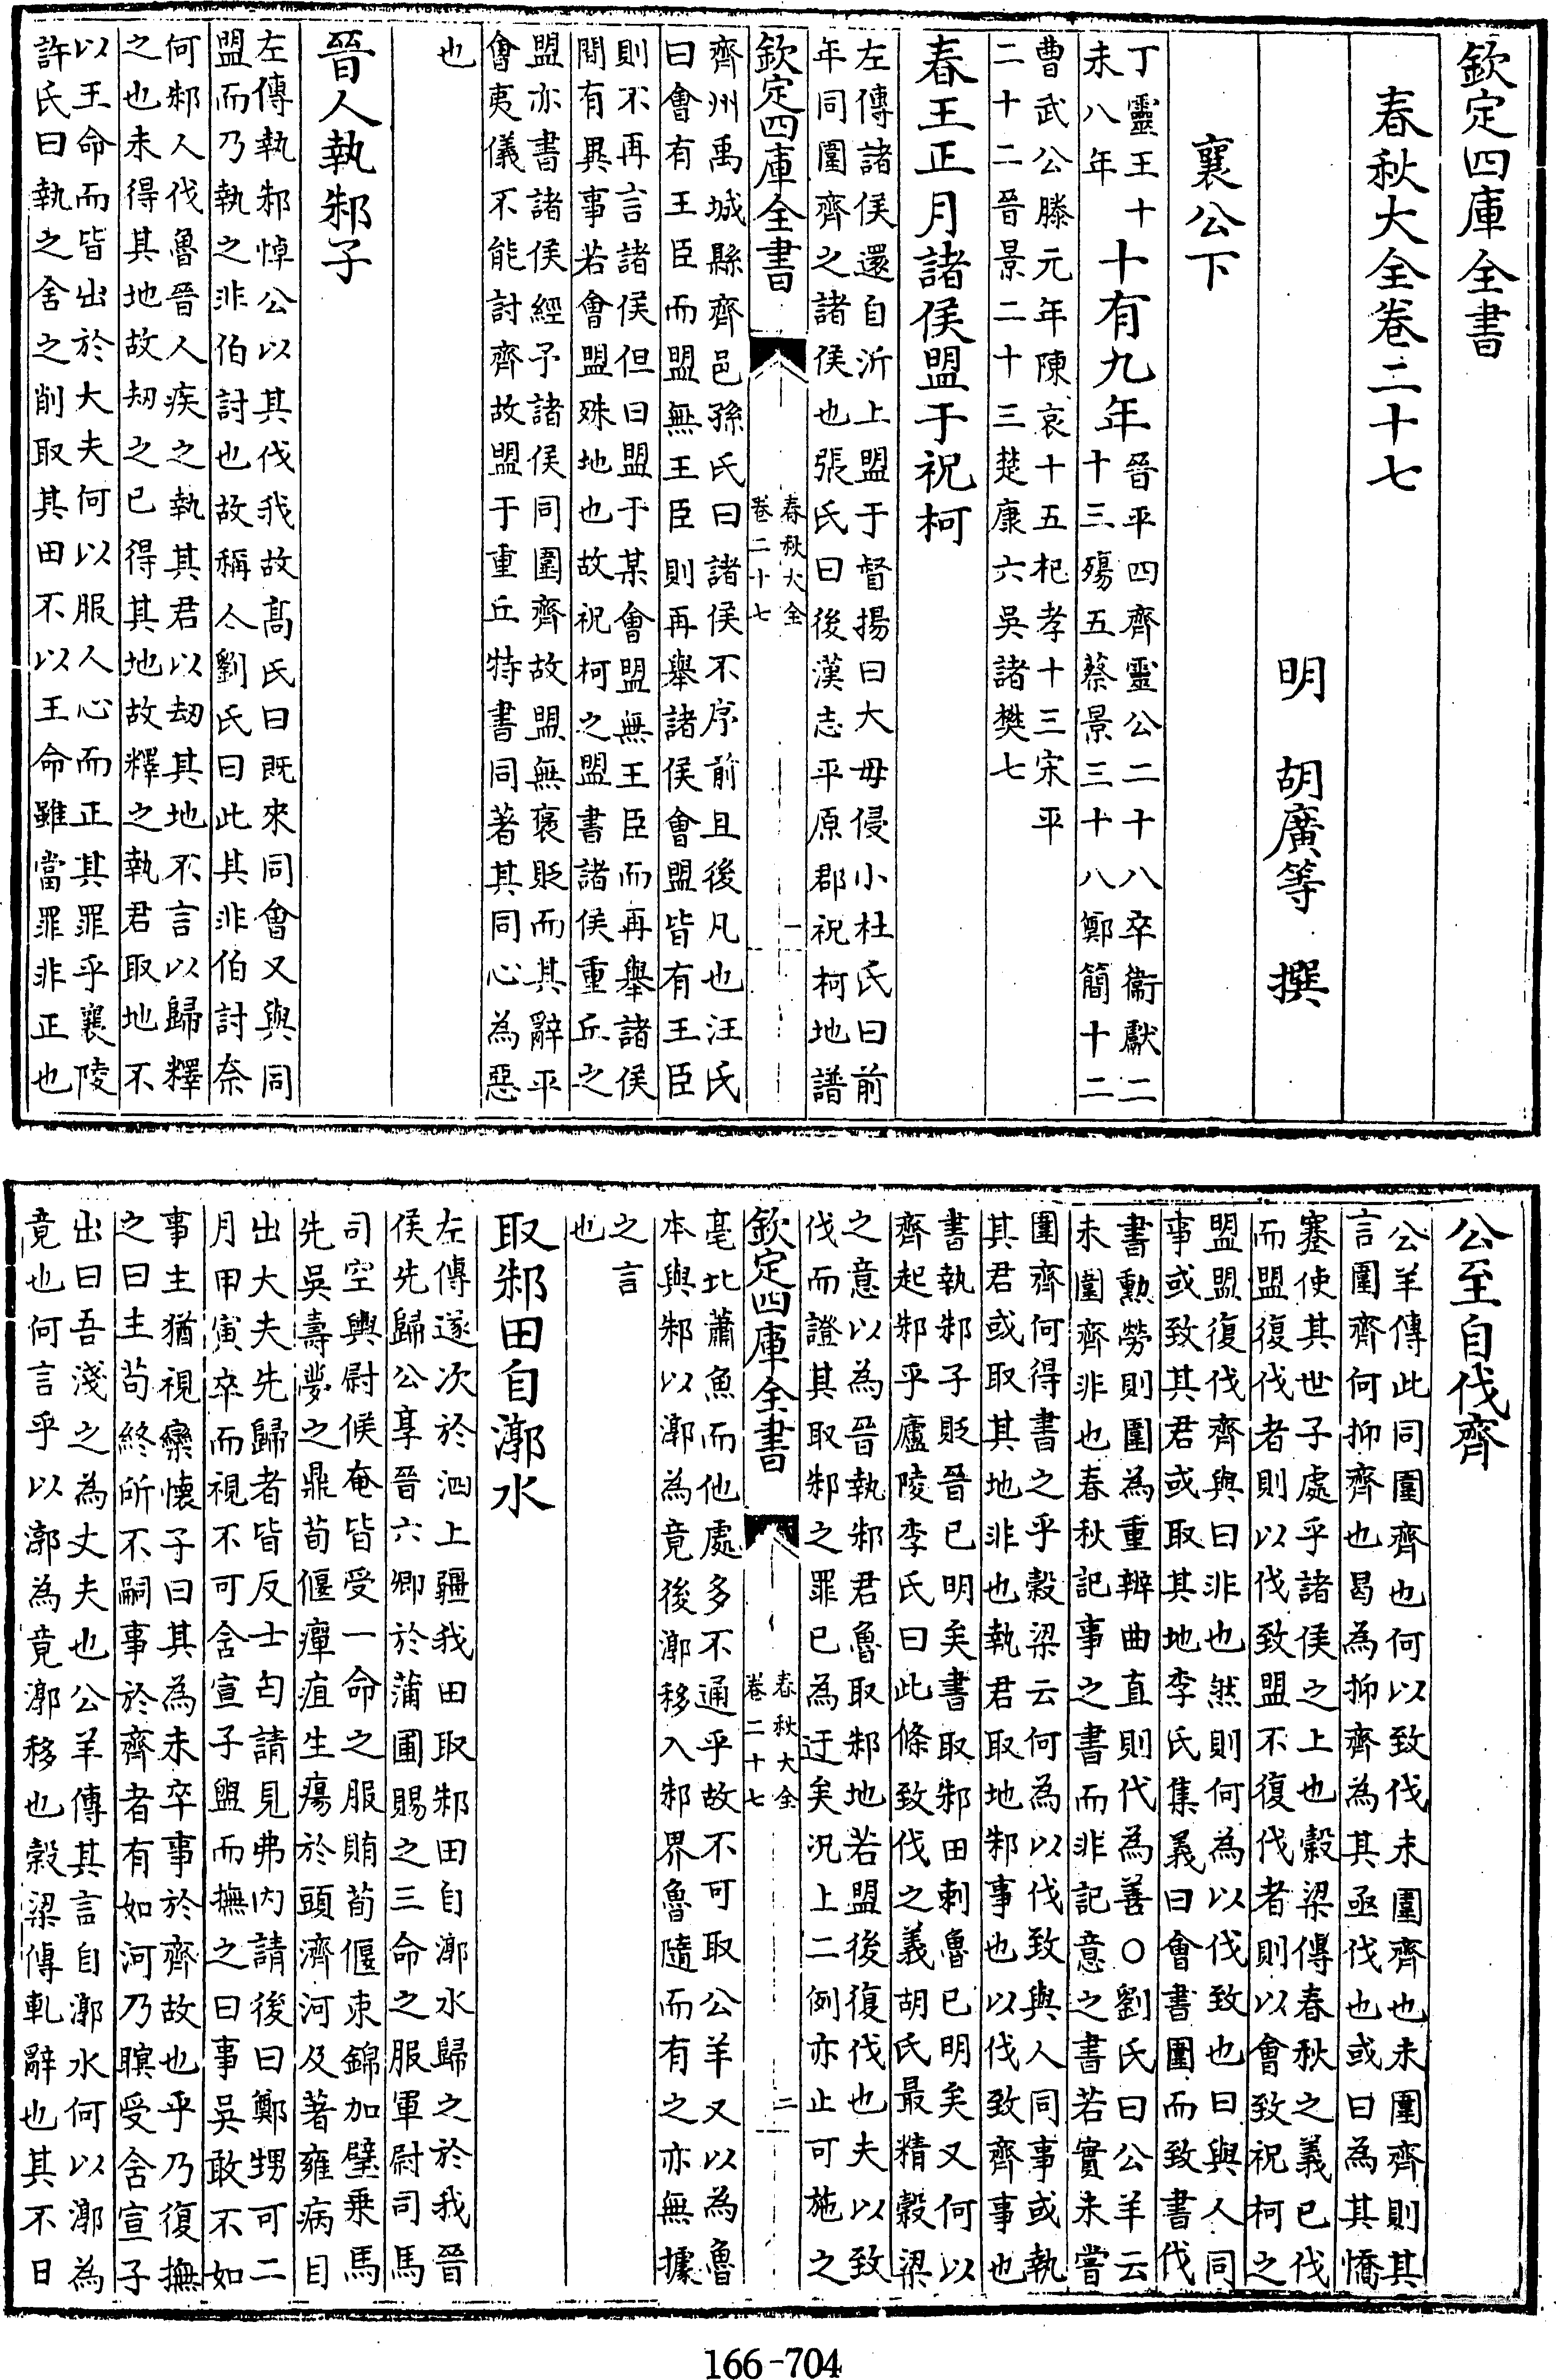 欽定四庫全書
春秋大全卷二十七
明 胡廣等 撰
襄公下
丁靈王十
未八年
十有九年
晉平四齊靈公二十八卒衞獻二
十三殤五蔡景三十八鄭簡十二
曹武公滕元年陳哀十五杞孝十三宋平
二十二晉景二十三楚康六吳諸樊七
春王正月諸侯盟于祝柯
左傳諸侯還自沂上盟于督揚曰大毋侵小杜氏曰前
年同圍齊之諸侯也張氏曰後漢志平原郡祝柯地譜
欽定四庫全書
春秋大全
卷二十七
一
齊州禹城縣齊邑孫氏曰諸侯不序前且後凡也汪氏
曰會有王臣而盟無王臣則再舉諸侯會盟皆有王臣
則不再言諸侯但曰盟于某會盟無王臣而再舉諸侯
間有異事若會盟殊地也故祝柯之盟書諸侯重丘之
盟亦書諸侯經予諸侯同圍齊故盟無褒貶而其辭平
會夷儀不能討齊故盟于重丘特書同著其同心為惡
也
晉人執邾子
左傳執邾悼公以其伐我故髙氏曰既來同會又與同
盟而乃執之非伯討也故稱人劉氏曰此其非伯討奈
何邾人伐魯晉人疾之執其君以劫其地不言以歸釋
之也未得其地故刼之已得其地故釋之執君取地不
以王命而皆出於大夫何以服人心而正其罪乎襄陵
許氏曰執之舍之削取其田不以王命雖當罪非正也
公至自伐齊
公羊傳此同圍齊也何以致伐未圍齊也未圍齊則其
言圍齊何抑齊也曷為抑齊為其亟伐也或曰為其憍
蹇使其世子處乎諸侯之上也穀梁傳春秋之義已伐
而盟復伐者則以伐致盟不復伐者則以會致祝柯之
盟盟復伐齊與曰非也然則何為以伐致也曰與人同
事或致其君或取其地李氏集義曰會書圍而致書伐
書勳勞則圍為重辨曲直則代為善○劉氏曰公羊云
未圍齊非也春秋記事之書而非記意之書若實未嘗
圍齊何得書之乎穀梁云何為以伐致與人同事或執
其君或取其地非也執君取地邾事也以伐致齊事也
書執邾子貶晉已明矣書取邾田刺魯已明矣又何以
齊起邾乎廬陵李氏曰此條致伐之義胡氏最精穀梁
之意以為晉執邾君魯取邾地若盟後復伐也夫以致
伐而證其取邾之罪已為迂矣況上二例亦止可施之
欽定四庫全書
春秋大全
卷二十七
二
亳北蕭魚而他處多不通乎故不可取公羊又以為魯
本與邾以漷為竟後漷移入邾界魯隨而有之亦無據
之言
也
取邾田自漷水
左傳遂次於泗上疆我田取邾田自漷水歸之於我晉
侯先歸公享晉六卿於蒲圃賜之三命之服軍尉司馬
司空輿尉候奄皆受一命之服賄荀偃束錦加璧乗馬
先吳壽夢之鼎荀偃癉疽生瘍於頭濟河及著雍病目
出大夫先歸者皆反士匄請見弗内請後曰鄭甥可二
月甲寅卒而視不可含宣子盥而撫之曰事吳敢不如
事主猶視欒懷子曰其為未卒事於齊故也乎乃復撫
之曰主苟終所不嗣事於齊者有如河乃瞑受含宣子
出曰吾淺之為丈夫也公羊傳其言自漷水何以漷為
竟也何言乎以漷為竟漷移也穀梁傳軋辭也其不日
166-704